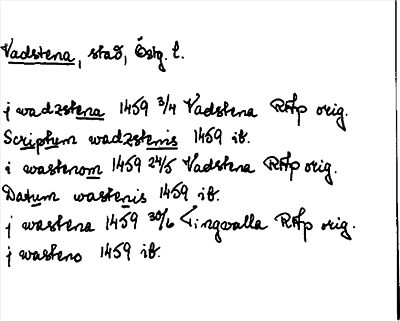 Vadstena, stad, Östg. l.
j wadzstena 1459 3/4 Vadstena RAp orig.
Scriptum wadzstenis 1459 ib.
i wastenom 1459 24/5 Vadstena RAp orig.
Datum wastenis 1459 ib.
j wastena 1459 30/6 Lingvalla RAp orig.
j wasteno 1459 ib.